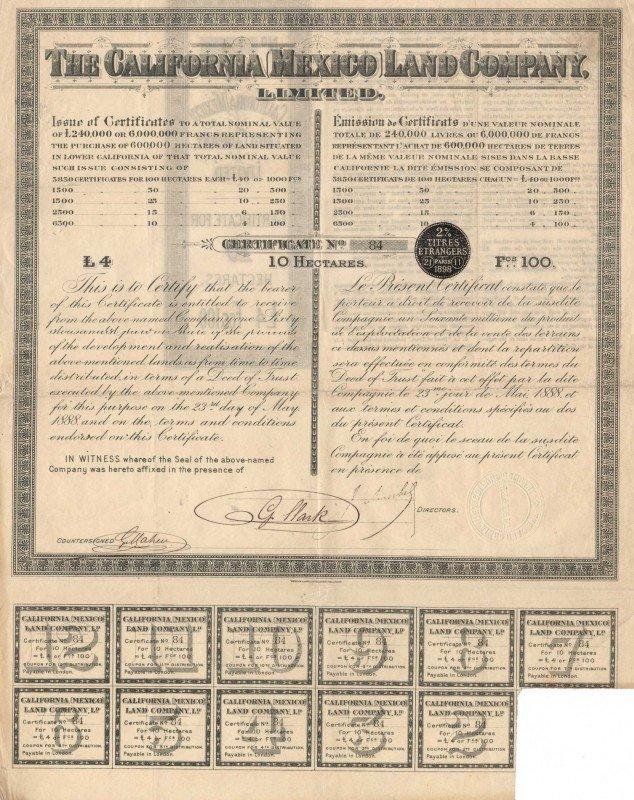 THE CALIFORNIA MEXICO LAND COMPANY,
LIMITED.
Issue of Certificates TO A TOTAL NOMINAL VALUE
OF £240,000 OR 6,000,000 FRANCS REPRESENTING
THE PURCHASE OF 600,000 HECTARES OF LAND SITUATED
IN LOWER CALIFORNIA OF THAT TOTAL NOMINAL VALUE
SUCH ISSUE CONSISTING OF
5350 CERTIFICATES FOR 100 HECTARES EACH = £40 OR 1000 Fcs
1500 50 20 . 500
1500 25 10 . 250
2500 15 6 . 150
6500 10 4 . 100
Émission de Certificats D'UNE VALEUR NOMINALE
TOTALE DE 240,000 LIVRES OU 6,000,000 DE FRANCS
REPRÉSENTANT L'ACHAT DE 600,000 HECTARES DE TERRES
DE LA MÊME VALEUR NOMINALE SISES DANS LA BASSE
CALIFORNIE LA DITE ÉMISSION SE COMPOSANT DE
5350 CERTIFICATS DE 100 HECTARES CHACUN = £40 OU 1000 Fcs
1500 50 20 . 500
1500 25 10 . 250
2500 15 6 . 150
6500 10 4 . 100
CERTIFICATE No 84
2%
TITRES
ETRANGERS
21 PARIS 11
1898
£4
10 HECTARES.
Fcs 100.
This is to Certify that the bearer
of this Certificate is entitled to receive
from the above-named Company one Sixty
thousandth part or share of the proceeds
of the development and realisation of the
above-mentioned lands as from time to time
distributed in terms of a Deed of Trust
executed by the above mentioned Company
for this purpose on the 23rd day of May
1888 and on the terms and conditions
endorsed on this Certificate.
IN WITNESS whereof the Seal of the above-named
Company was hereto affixed in the presence of
Le Présent Certificat constate que le
porteur a droit de recevoir de la susdite
Compagnie un Soixante millième du produit
de l'exploitation et de la vente des terrains
ci-dessus mentionnés et dont la repartition
sera effectuée en conformité des termes du
Deed of Trust fait à cet effet par la dite
Compagnie le 23e jour de Mai 1888 et
aux termes et conditions spécifiés au dos
du présent Certificat.
En foi de quoi le sceau de la susdite
Compagnie à été apposé au présent Certificat
en présence de
DIRECTORS.
COUNTERSIGNED
CALIFORNIA MEXICO
LAND COMPANY, Ld
Certificate No 84
For 10 Hectares
= £4 or Fcs 100
COUPON FOR 12TH DISTRIBUTION.
Payable in London.
CALIFORNIA MEXICO
LAND COMPANY, Ld
Certificate No 84
For 10 Hectares
= £4 or Fcs 100
COUPON FOR 11TH DISTRIBUTION.
Payable in London.
CALIFORNIA MEXICO
LAND COMPANY, Ld
Certificate No 84
For 10 Hectares
= £4 or Fcs 100
COUPON FOR 10TH DISTRIBUTION.
Payable in London.
CALIFORNIA MEXICO
LAND COMPANY, Ld
Certificate No 84
For 10 Hectares
= £4 or Fcs 100
COUPON FOR 9TH DISTRIBUTION.
Payable in London.
CALIFORNIA MEXICO
LAND COMPANY, Ld
Certificate No 84
For 10 Hectares
= £4 or Fcs 100
COUPON FOR 8TH DISTRIBUTION.
Payable in London.
CALIFORNIA MEXICO
LAND COMPANY, Ld
Certificate No 84
For 10 Hectares
= £4 or Fcs 100
COUPON FOR 7TH DISTRIBUTION.
Payable in London.
CALIFORNIA MEXICO
LAND COMPANY, Ld
Certificate No 84
For 10 Hectares
= £4 or Fcs 100
COUPON FOR 6TH DISTRIBUTION.
Payable in London.
CALIFORNIA MEXICO
LAND COMPANY, Ld
Certificate No 84
For 10 Hectares
= £4 or Fcs 100
COUPON FOR 5TH DISTRIBUTION.
Payable in London.
CALIFORNIA MEXICO
LAND COMPANY, Ld
Certificate No 84
For 10 Hectares
= £4 or Fcs 100
COUPON FOR 4TH DISTRIBUTION.
Payable in London.
CALIFORNIA MEXICO
LAND COMPANY, Ld
Certificate No 84
For 10 Hectares
= £4 or Fcs 100
COUPON FOR 3RD DISTRIBUTION.
Payable in London.
CALIFORNIA MEXICO
LAND COMPANY, Ld
Certificate No 84
For 10 Hectares
= £4 or Fcs 100
COUPON FOR 2ND DISTRIBUTION.
Payable in London.